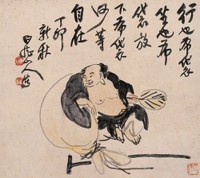 行也布袋
坐也布
袋放
下布袋
何等
自在
丁卯
新秋
白龍山人